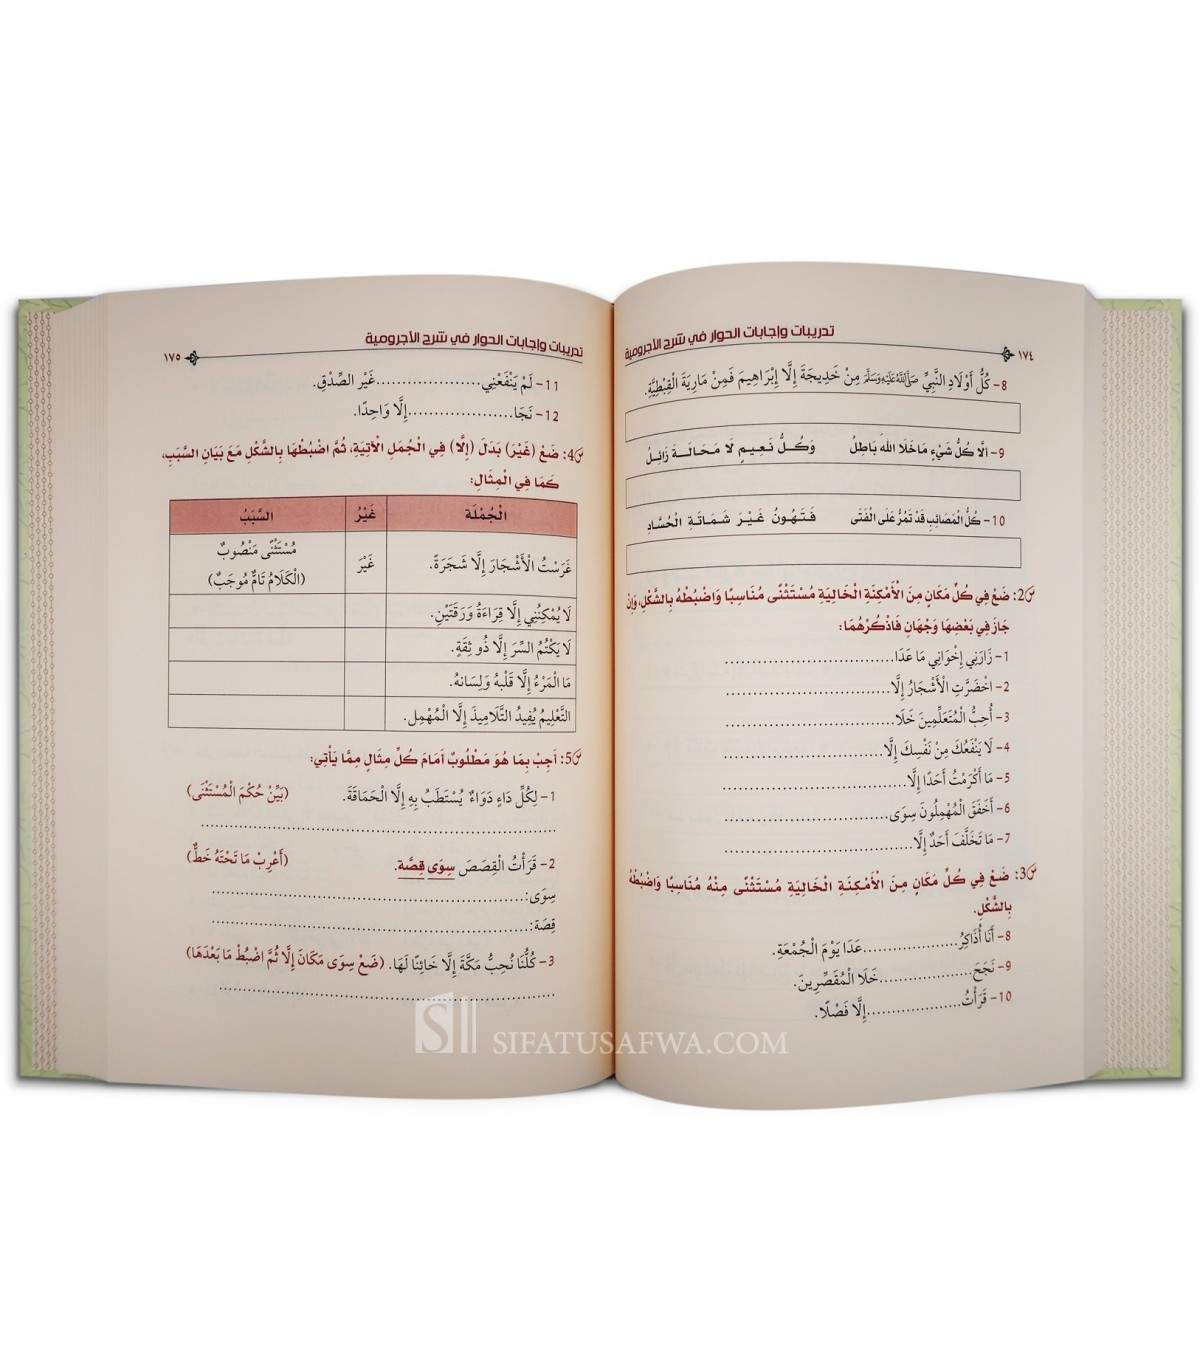 ١٧٤ تدريبات وإجابات الحوار في شرح الآجرومية
8- كُلُّ أَوْلَادِ النَّبِيِّ ﷺ مِنْ خَدِيجَةَ إِلَّا إِبْرَاهِيمَ فَمِنْ مَارِيَةَ الْقِبْطِيَّةِ.
9- أَلَا كُلُّ شَيْءٍ مَا خَلَا اللَّهَ بَاطِلُ وَكُلُّ نَعِيمٍ لَا مَحَالَةَ زَائِلُ
10- كُلُّ الْمَصَائِبِ قَدْ تَمُرُّ عَلَى الْفَتَى فَتَهُونُ غَيْرَ شَمَاتَةِ الْحُسَّادِ
س2: ضَعْ فِي كُلِّ مَكَانٍ مِنَ الْأَمْكِنَةِ الْخَالِيَةِ مُسْتَثْنًى مُنَاسِبًا وَاضْبُطْهُ بِالشَّكْلِ، وَإِنْ
جَازَ فِي بَعْضِهَا وَجْهَانِ فَاذْكُرْهُمَا:
1- زَارَنِي إِخْوَانِي مَا عَدَا................................
2- اخْضَرَّتِ الْأَشْجَارُ إِلَّا...............................
3- أُحِبُّ الْمُتَعَلِّمِينَ خَلَا................................
4- لَا يَنْفَعُكَ مِنْ نَفْسِكَ إِلَّا..............................
5- مَا أَكْرَمْتُ أَحَدًا إِلَّا...................................
6- أَخْفَقَ الْمُهْمِلُونَ سِوَى...............................
7- مَا تَخَلَّفَ أَحَدٌ إِلَّا...................................
س3: ضَعْ فِي كُلِّ مَكَانٍ مِنَ الْأَمْكِنَةِ الْخَالِيَةِ مُسْتَثْنًى مِنْهُ مُنَاسِبًا وَاضْبُطْهُ
بِالشَّكْلِ.
8- أَنَا أُذَاكِرُ..................عَدَا يَوْمَ الْجُمْعَةِ.
9- نَجَحَ..................خَلَا الْمُقَصِّرِينَ.
10- قَرَأْتُ..................إِلَّا فَصْلًا.
تدريبات وإجابات الحوار في شرح الآجرومية ١٧٥
11- لَمْ يَنْفَعْنِي....................غَيْر الصِّدْقِ.
12- نَجَا....................إِلَّا وَاحِدًا.
س4: ضَعْ (غَيْرَ) بَدَلَ (إِلَّا) فِي الْجُمَلِ الْآتِيَةِ، ثُمَّ اضْبُطْهَا بِالشَّكْلِ مَعَ بَيَانِ السَّبَبِ،
كَمَا فِي الْمِثَالِ:
الْجُمْلَة غَيْرُ السَّبَبُ
غَرَسْتُ الْأَشْجَارَ إِلَّا شَجَرَةً. غَيْرَ مُسْتَثْنًى مَنْصُوبٌ
(الْكَلَامُ تَامٌّ مُوجَبٌ)
لَا يُمْكِنُنِي إِلَّا قِرَاءَةُ وَرَقَتَيْنِ.
لَا يَكْتُمُ السِّرَ إِلَّا ذُو ثِقَةٍ.
مَا الْمَرْءُ إِلَّا قَلْبهُ وَلِسَانهُ.
التَّعْلِيمُ يُفِيدُ التَّلَامِيذَ إِلَّا الْمُهْمِل.
س5: أَجِبْ بِمَا هُوَ مَطْلُوبٌ أَمَامَ كُلِّ مِثَالٍ مِمَّا يَأْتِي:
1- لِكُلِّ دَاءٍ دَوَاءٌ يُسْتَطَبُ بِهِ إِلَّا الْحَمَاقَةَ. (بَيِّنْ حُكْمَ الْمُسْتَثْنَى)
2- قَرَأْتُ الْقِصَصَ سِوَى قِصَّة. (أَعْرِبْ مَا تَحْتَهُ خَطٌّ)
سِوَى:..................................................
قِصَة:..................................................
3- كُلُّنَا نُحِبُّ مَكَّةَ إِلَّا خَائِنًا لَهَا. (ضَعْ سِوَى مَكَانَ إِلَّا ثُمَّ اضْبُطْ مَا بَعْدَهَا)
S SIFATUSAFWA.COM